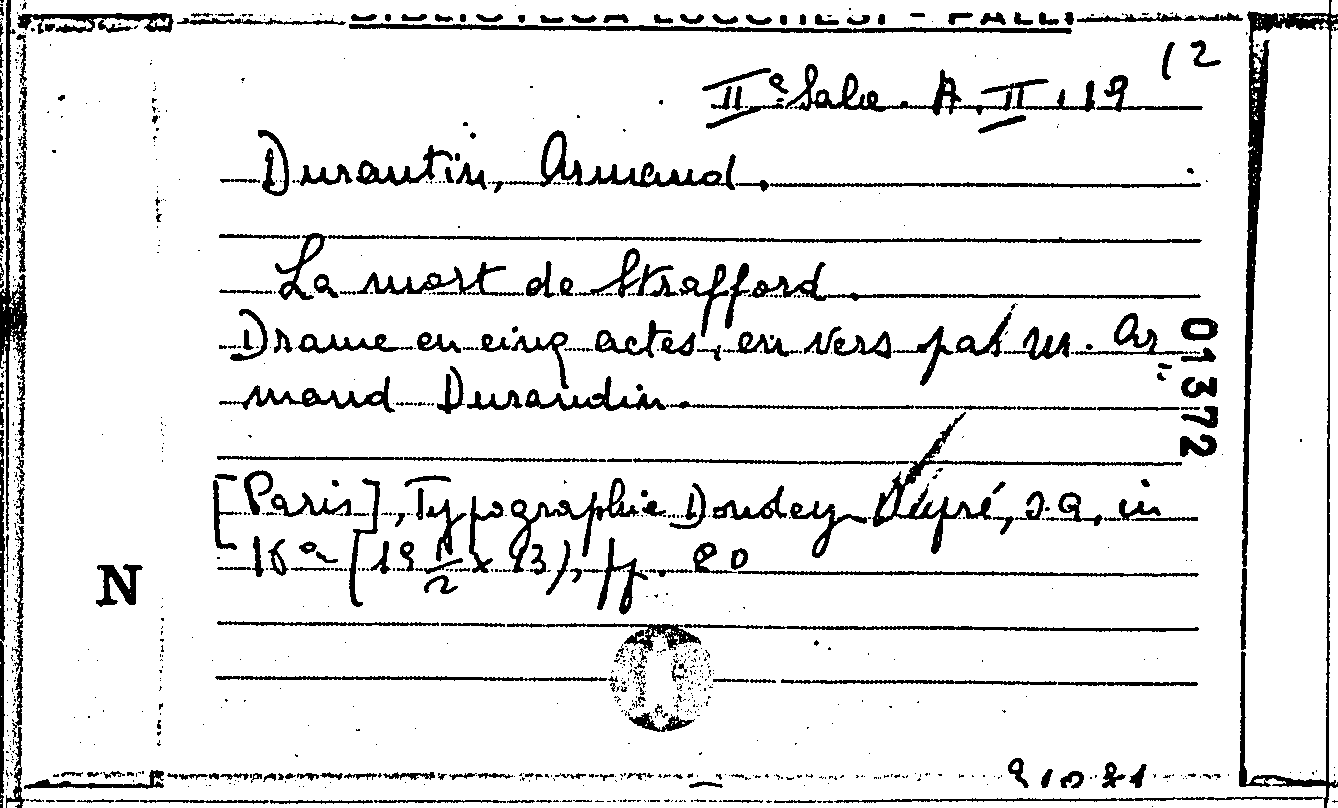 BIBLIOTECA LUCCHESI - PALLI
IIª Sala. A. II. 19 (2
Durantin, Armand.
La mort de Strafford.
Drame en cinq actes, en vers par M. Ar
mand Durandin.
[Paris], Typographie Dondey-Dupré, s.a., in
16° (19 1/2 x 13), pp. 20
01372
N